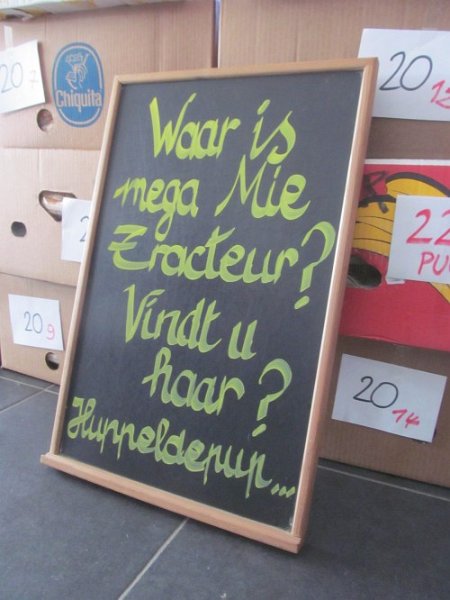 Waar is
mega Mie
Tracteur?
Vindt u
haar?
Huppeldepup...
Chiquita
20 7
20 9
20 13
22
PU
20 14